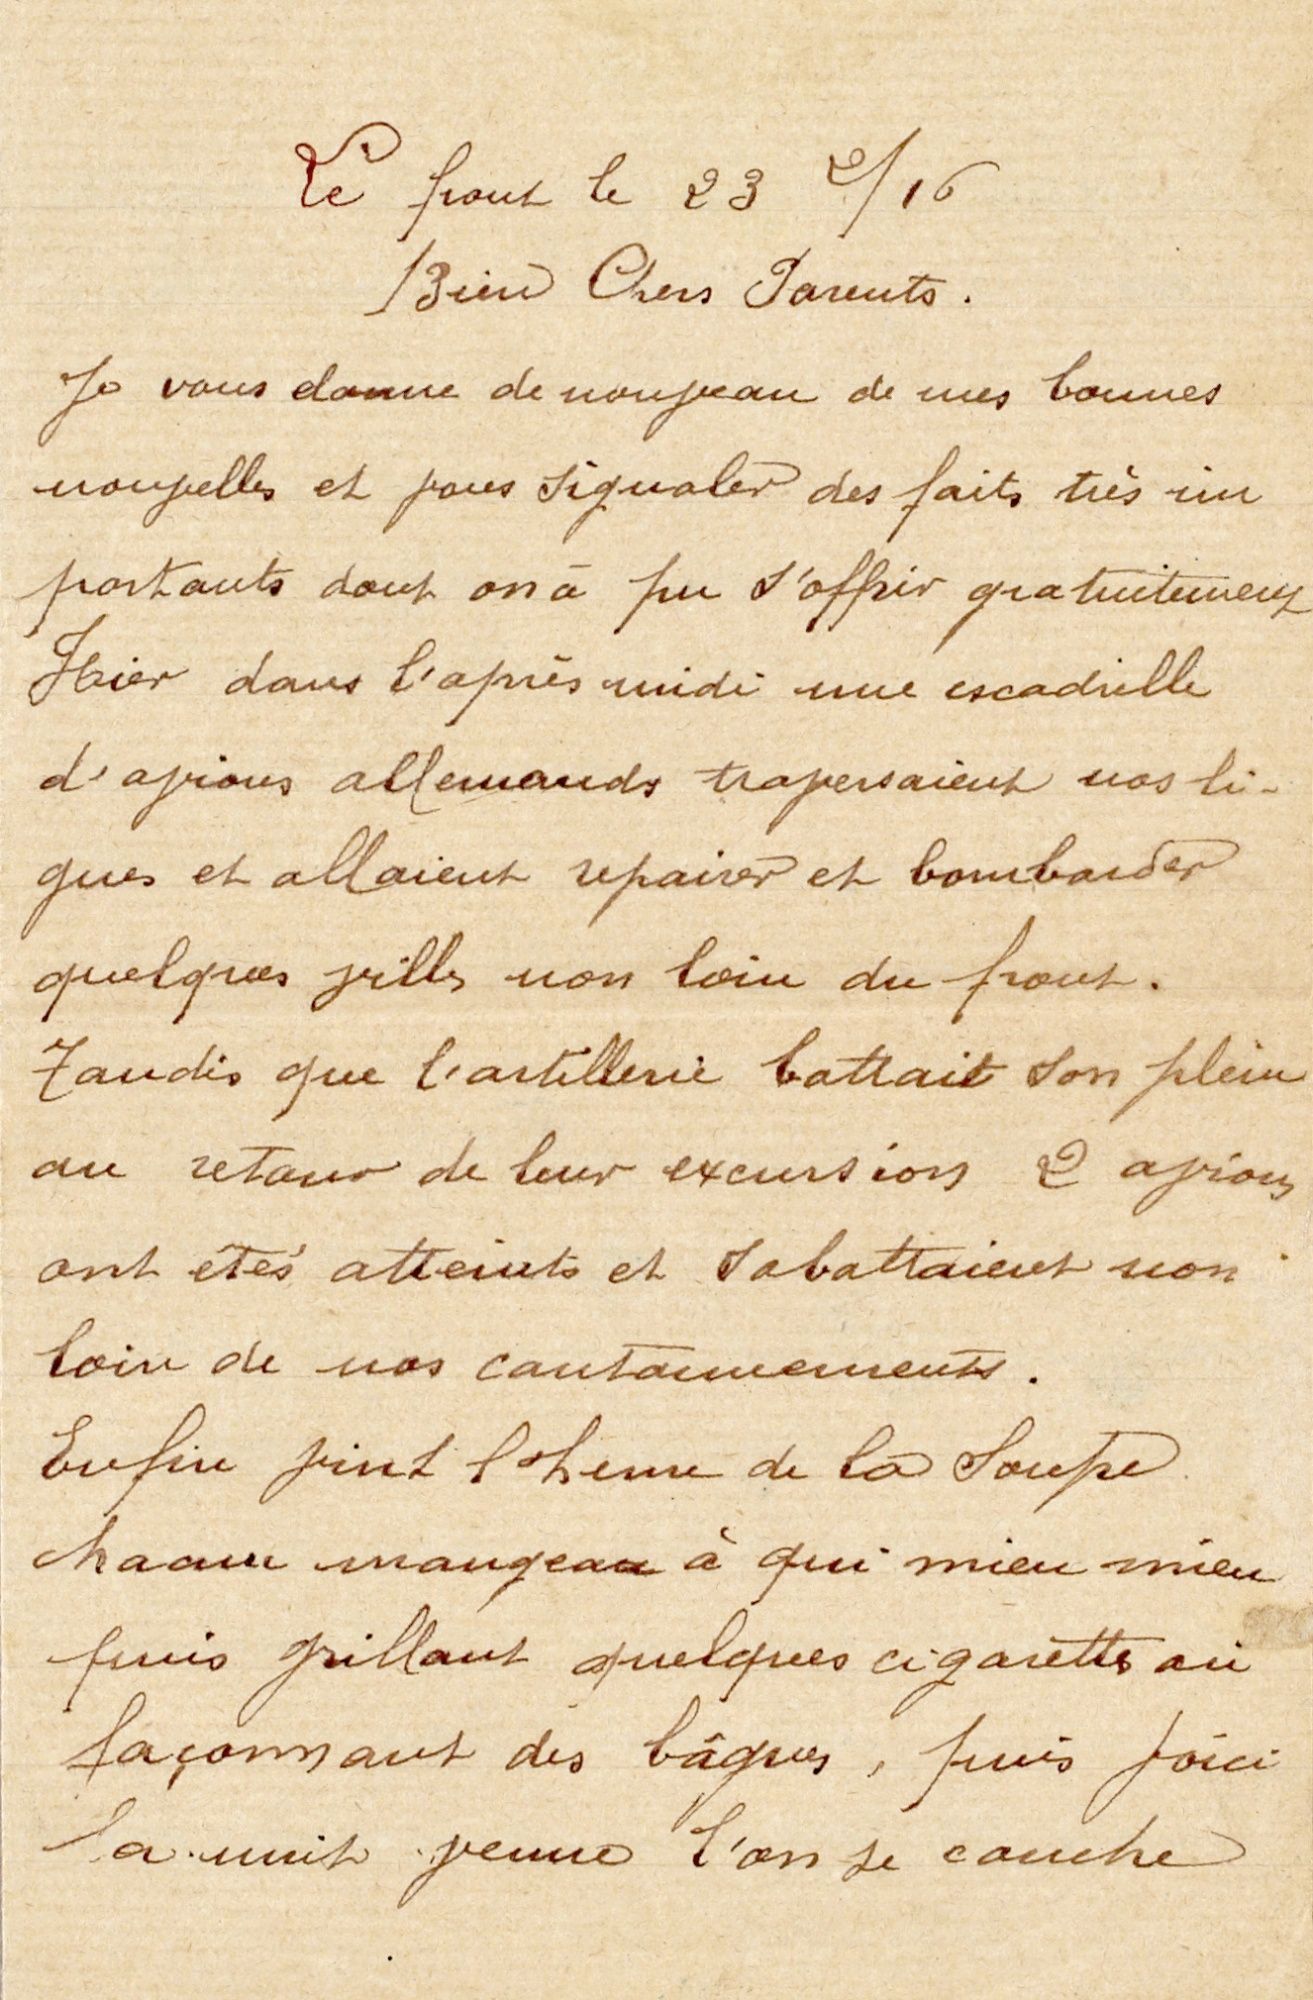 Le front le 23 2/16
Bien Chers Parents.
Je vous donne de nouveau de mes bonnes
nouvelles et vous signaler des faits très im
portants dont on à pu s'offrir gratuitement
Hier dans l'après midi une escadrille
d'avions allemands traversaient nos li-
gnes et allaient repairer et bombarder
quelques villes non loin du front.
Tandis que l'artillerie battait son plein
au retour de leur excursion 2 avions
ont étés atteints et sabattaient non
loin de nos cantonnements.
Enfin vint l'heure de la soupe
chacun mangeau à qui mieu mieu
puis grillant quelques cigarettes ou
façonnant des bâgues, puis voici
la nuit venue l'on se couche